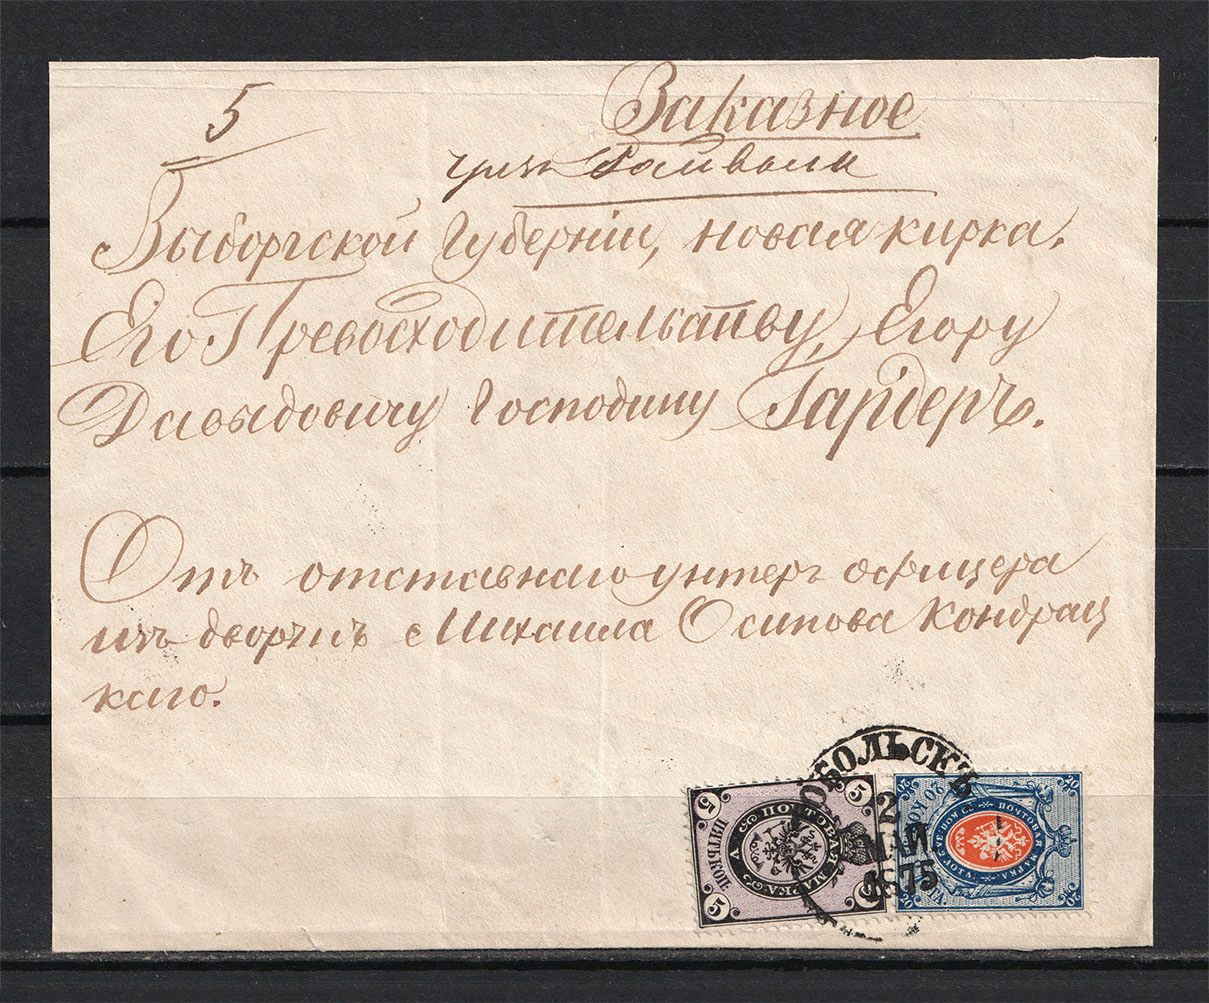 5
Заказное
чрезъ Райвола
Выборгской Губерніи, новая кирка.
Его Превосходительству, Егору
Давыдовичу Господину Гардеръ.
Отъ отставнаго унтеръ офицера
изъ дворянъ Михаила Осипова Кондрац
каго.
ОБОЛЬСКЪ
2
МАЙ
1875
5 5
5 5
ПЯТЬ КОП.
ПОЧТОВАЯ МАРКА
20 20
20 20
20 КОП.
ПОЧТОВАЯ МАРКА